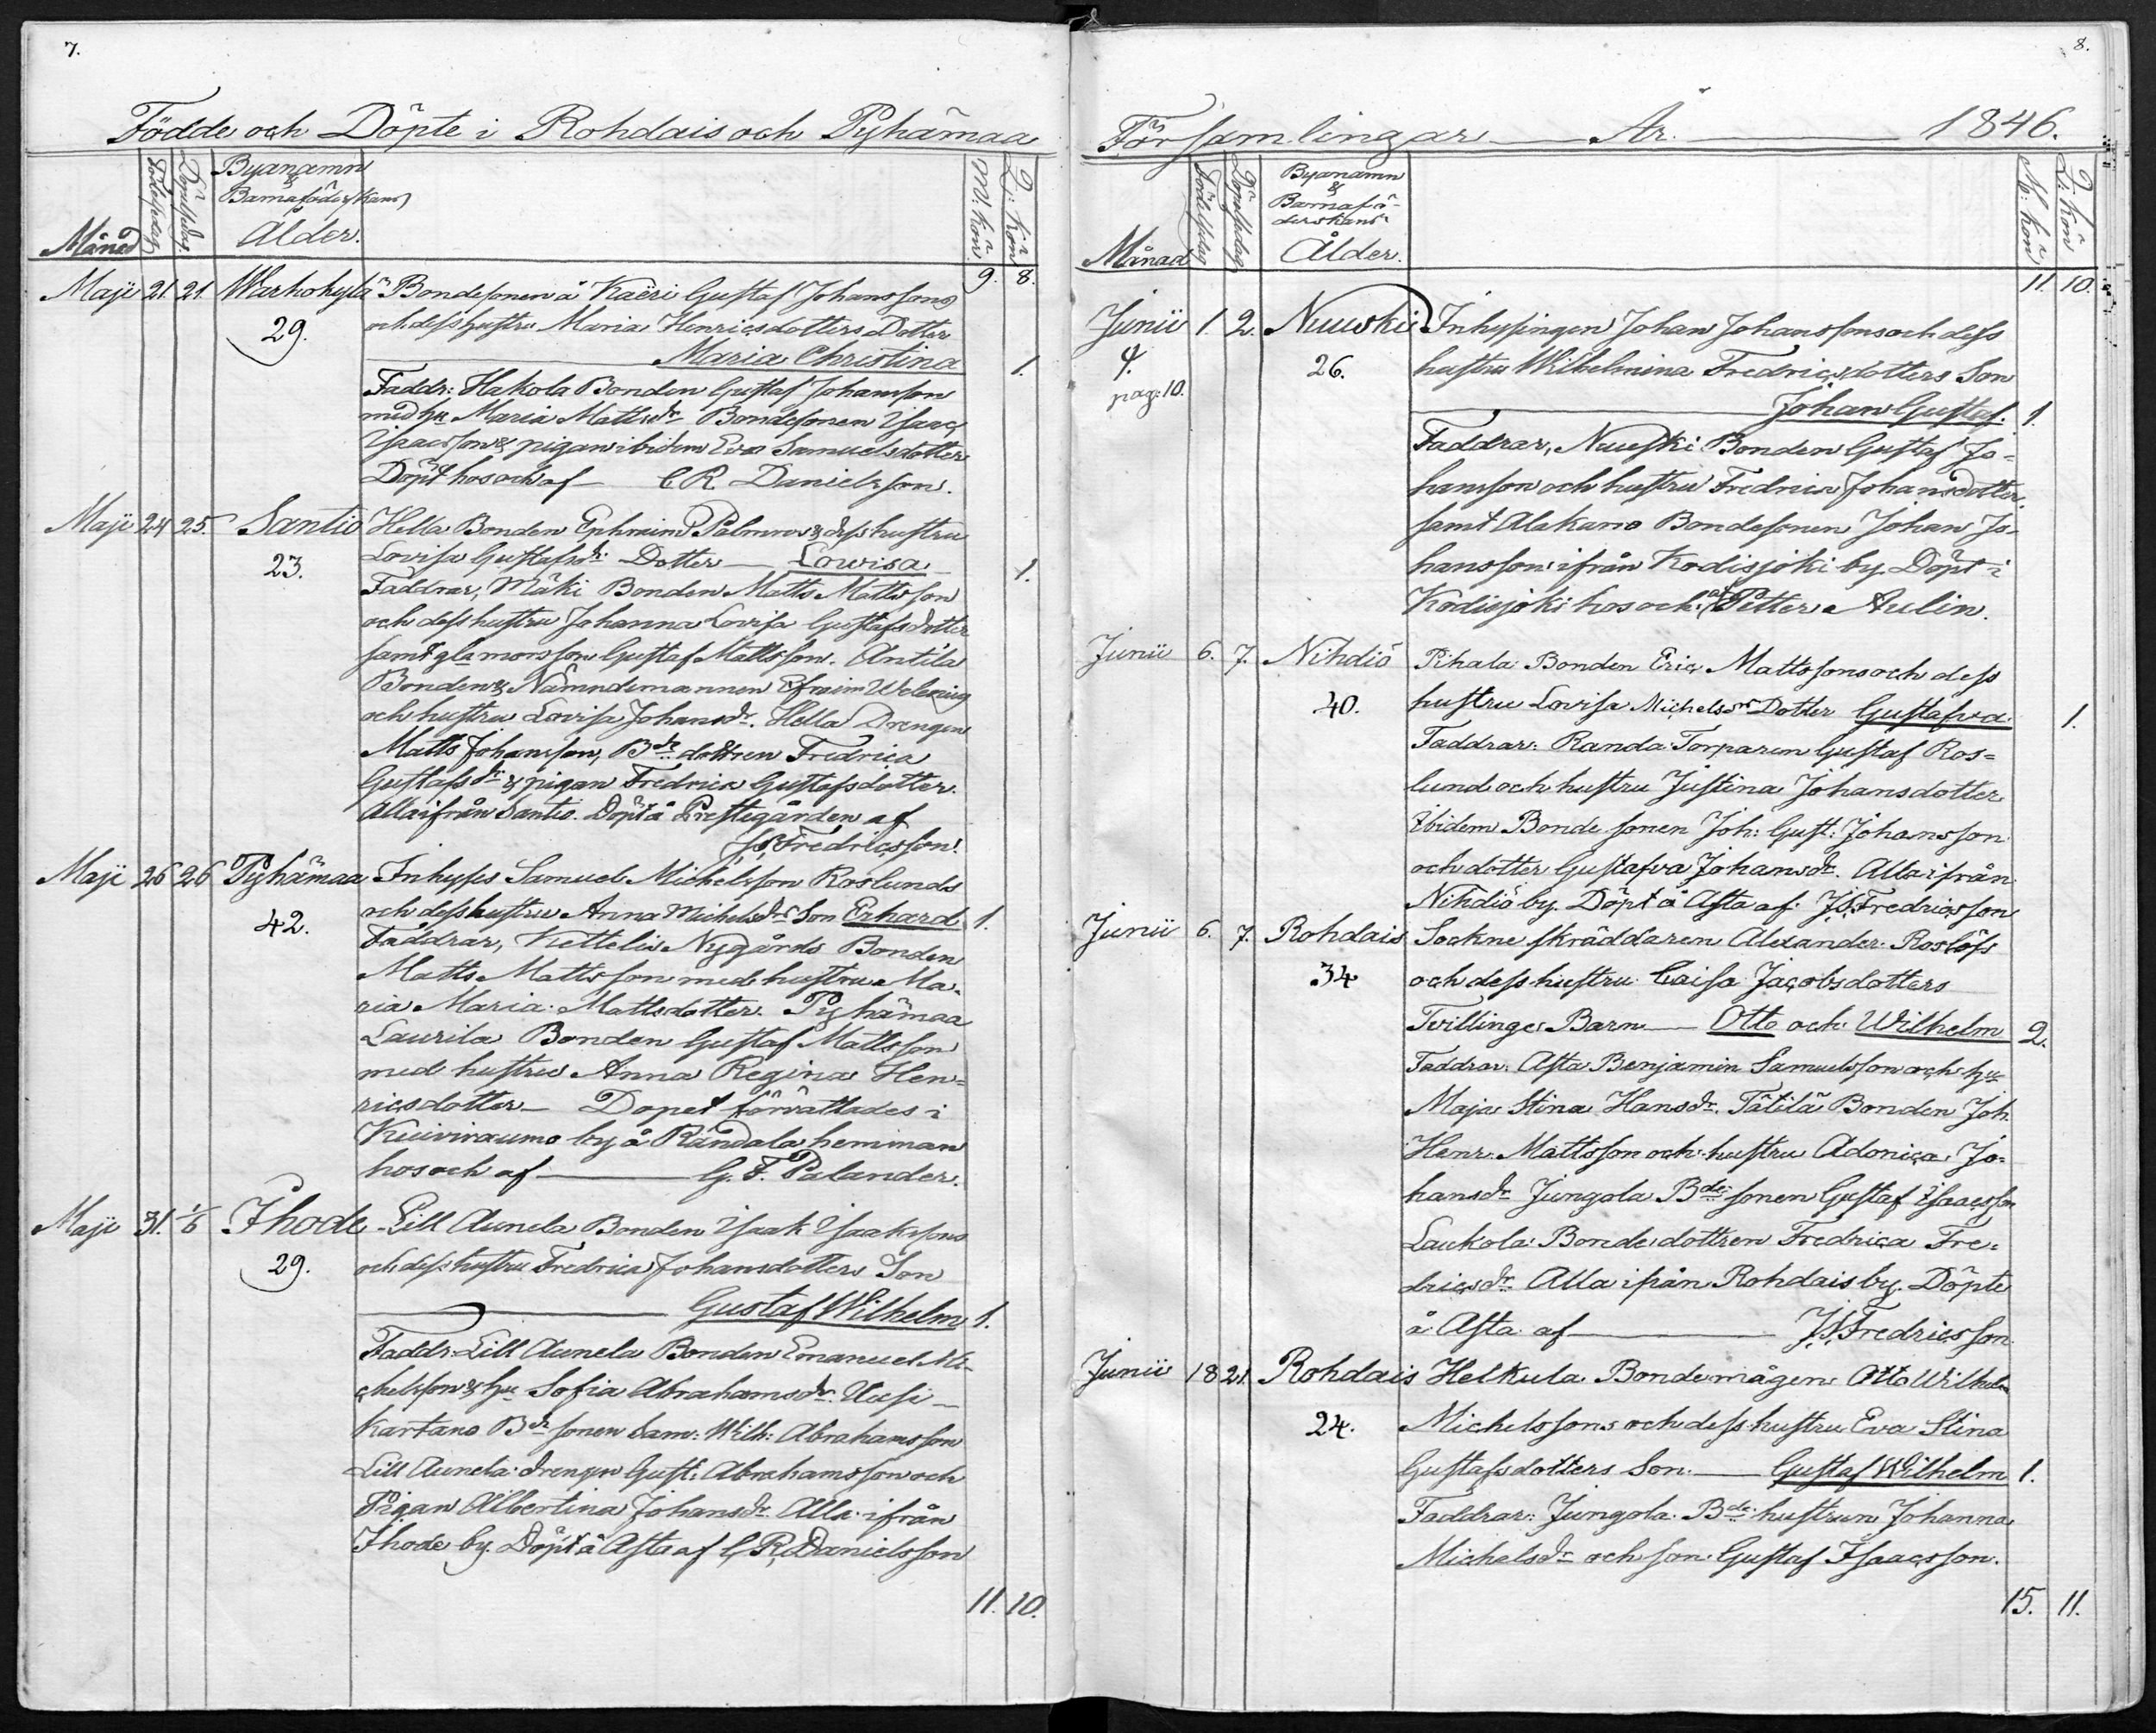 7.
Födde och Döpte i Rohdais och Pyhämaa
Månad
Födelsedag
Döpelsedag
Byanamn
&
Barnaföderskans
Ålder.
M: kön
Q: kön
9. 8.
Maji 21. 21. Warhokylä Bondesonen å Kaëri Gustaf Johanssons
29. och dess hustru Maria Henricsdotters Dotter
Maria Christina 1.
Faddr: Hakola Bonden Gustaf Johansson
med hu Maria Mattsdr Bondesonen Isaac
Isaacsson & pigan ibidem Eva Samuelsdotter
Döpt hos och af C R Danielsson.
Maji 24 25. Santio Hella Bonden Ephraim Palmros & dess hustru
23. Lovisa Gustafsdr Dotter Lowisa 1.
Faddrar, Mäki Bonden Matts Mattsson
och dess hustru Johanna Lovisa Gustafsdotter
samt gla morsson Gustaf Mattsson. Antila
Bonden & Nämndemannen Efraim
och hustru Lovisa Johansdr. Hella Drengen
Matts Johansson, Bde dottren Fredrica
Gustafsdr & pigan Fredrica Gustafsdotter.
Alla ifrån Santio. Döpt å Prestegården af
JS. Fredricsson.
Maji 26 26 Pyhämaa Inhyses Samuel Michelsson Roslunds
42. och dess hustru Anna Michelsdrs Son Erhard 1.
Faddrar, Kettelis Nygårds Bonden
Matts Mattsson med hustru Ma-
ria Maria Mattsdotter. Pyhämaa
Laurila Bonden Gustaf Mattsson
med hustru Anna Regina Hen-
ricsdotter— Dopet förrättades i
Kuiviraumo by å Rändala hemman
hos och af G. F. Palander.
Maji 31. 1/6 Ihode Lill Aunela Bonden Isaak Isaakssons
29. och dess hustru Fredrica Johansdotters Son
Gustaf Wilhelm 1.
Faddr: Lill Aunela Bonden Emanuel Mi-
chelsson & hu Sofia Abrahamsdr. Uusi—
kartano Bde sonen Sam: Wilh: Abrahamsson
Lill Aunela drengen Gust: Abrahamsson och
Pigan Albertina Johansdr. Alla ifrån
Ihode by. Döpt å Asta af C R Danielsson
11. 10.
8.
Församlingar År 1846.
Månad
Födelsedag
Döpelsedag
Byanamn
&
Barnafö-
derskans
Ålder.
M: kön
Q: kön
11. 10.
Junii 1. 2. Nuuski Inhysingen Johan Johanssons och dess
4. 26. hustru Wilhelmina Fredricsdotters Son
pag: 10. Johan Gustaf. 1.
Faddrar, Nuuski Bonden Gustaf Jo-
hansson och hustru Fredrica Johansdotter
samt Alakuno Bondesonen Johan Jo-
hansson ifrån Kodisjoki by. Döpt i
Kodisjoki hos och af Petter Aulin.
Junii 6. 7. Nihdiö Pihala Bonden Eric Mattssons och dess
40. hustru Lovisa Michelsdrs Dotter Gustafva. 1.
Faddrar: Randa Torparen Gustaf Ros-
lund och hustru Justina Johansdotter
Ibidem Bonde sonen Joh: Gust: Johansson
och dotter Gustafva Johansdr. Alla ifrån
Nihdiö by. Döpt å Asta af JS. Fredricsson
Junii 6. 7. Rohdais Sockne skräddaren Alexander Roslöfs
34 och dess hustru Caisa Jacobsdotters
Tvillinge Barn Otto och Wilhelm 2.
Faddrar: Asta Benjamin Samuelsson och hu
Maja Stina Hansdr. Tätilä Bonden Joh.
Henr. Mattsson och hustru Adonica Jo-
hansdr Jungola Bde sonen Gustaf Isaacsson
Laukola Bonde dottren Fredrica Fre-
dricsdr Alla ifrån Rohdais by. Döpte
å Asta af JS. Fredricsson.
Junii 18 21. Rohdais Helkula Bondemågen Otto Wilhelm
24. Michelssons och dess hustru Eva Stina
Gustafsdotters Son. Gustaf Wilhelm 1.
Faddrar: Jungola Bde hustrun Johanna
Michelsdr och son Gustaf Isaacsson.
15. 11.